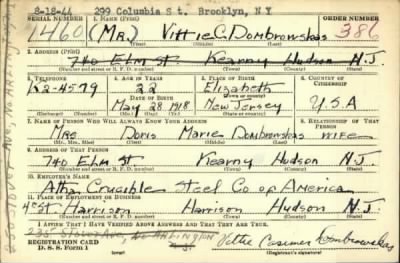 8-18-44 299 Columbia St. Brooklyn, N.Y
SERIAL NUMBER 1. NAME (Print) ORDER NUMBER
1460 (MR.) Vittie C. Dombrowskas 386
(First) (Middle) (Last)
2. ADDRESS (Print)
740 Elm St. Kearny Hudson N.J.
(Number and street or R. F. D. number) (Town) (County) (State)
3. TELEPHONE 4. AGE IN YEARS 5. PLACE OF BIRTH 6. COUNTRY OF CITIZENSHIP
K2-4579 22 Elizabeth
DATE OF BIRTH (Town or county)
May 28 1918 New Jersey U.S.A
(Exchange) (Number) (Mo.) (Day) (Yr.) (State or country)
7. NAME OF PERSON WHO WILL ALWAYS KNOW YOUR ADDRESS 8. RELATIONSHIP OF THAT PERSON
Mrs Doris Marie Dombrowskas wife
(Mr., Mrs., Miss) (First) (Middle) (Last)
9. ADDRESS OF THAT PERSON
740 Elm St Kearny Hudson N.J.
(Number and street or R. F. D. number) (Town) (County) (State)
10. EMPLOYER'S NAME
Crucible Steel Co of America
11. PLACE OF EMPLOYMENT OR BUSINESS
4th St. Harrison Harrison Hudson N.J.
(Number and street or R. F. D. number) (Town) (County) (State)
I AFFIRM THAT I HAVE VERIFIED ABOVE ANSWERS AND THAT THEY ARE TRUE.
No ARLINGTON
REGISTRATION CARD Vittie Dombrowskas
D. S. S. Form 1 (over) (Registrant's signature)